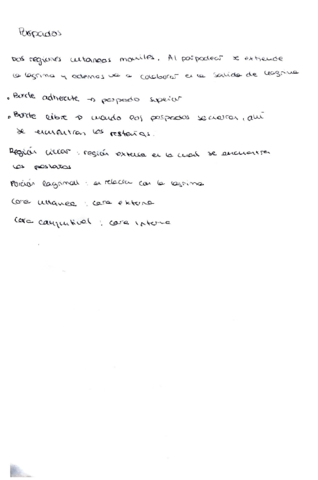 Párpados
Dos regiones cutáneas móviles. Al parpadear se extiende
la lagrima y además va a colaborar en la salida de lagrima
• Borde adherente → parpado superior
• Borde libre → cuando los parpados se cierran, ahí
se encuentran las pestañas.
Región ciliar: región extensa en la cual se encuentra
las pestañas
Porción lagrimal: en relación con la lagrima
Cara cutánea: cara externa
Cara conjuntival: cara interna